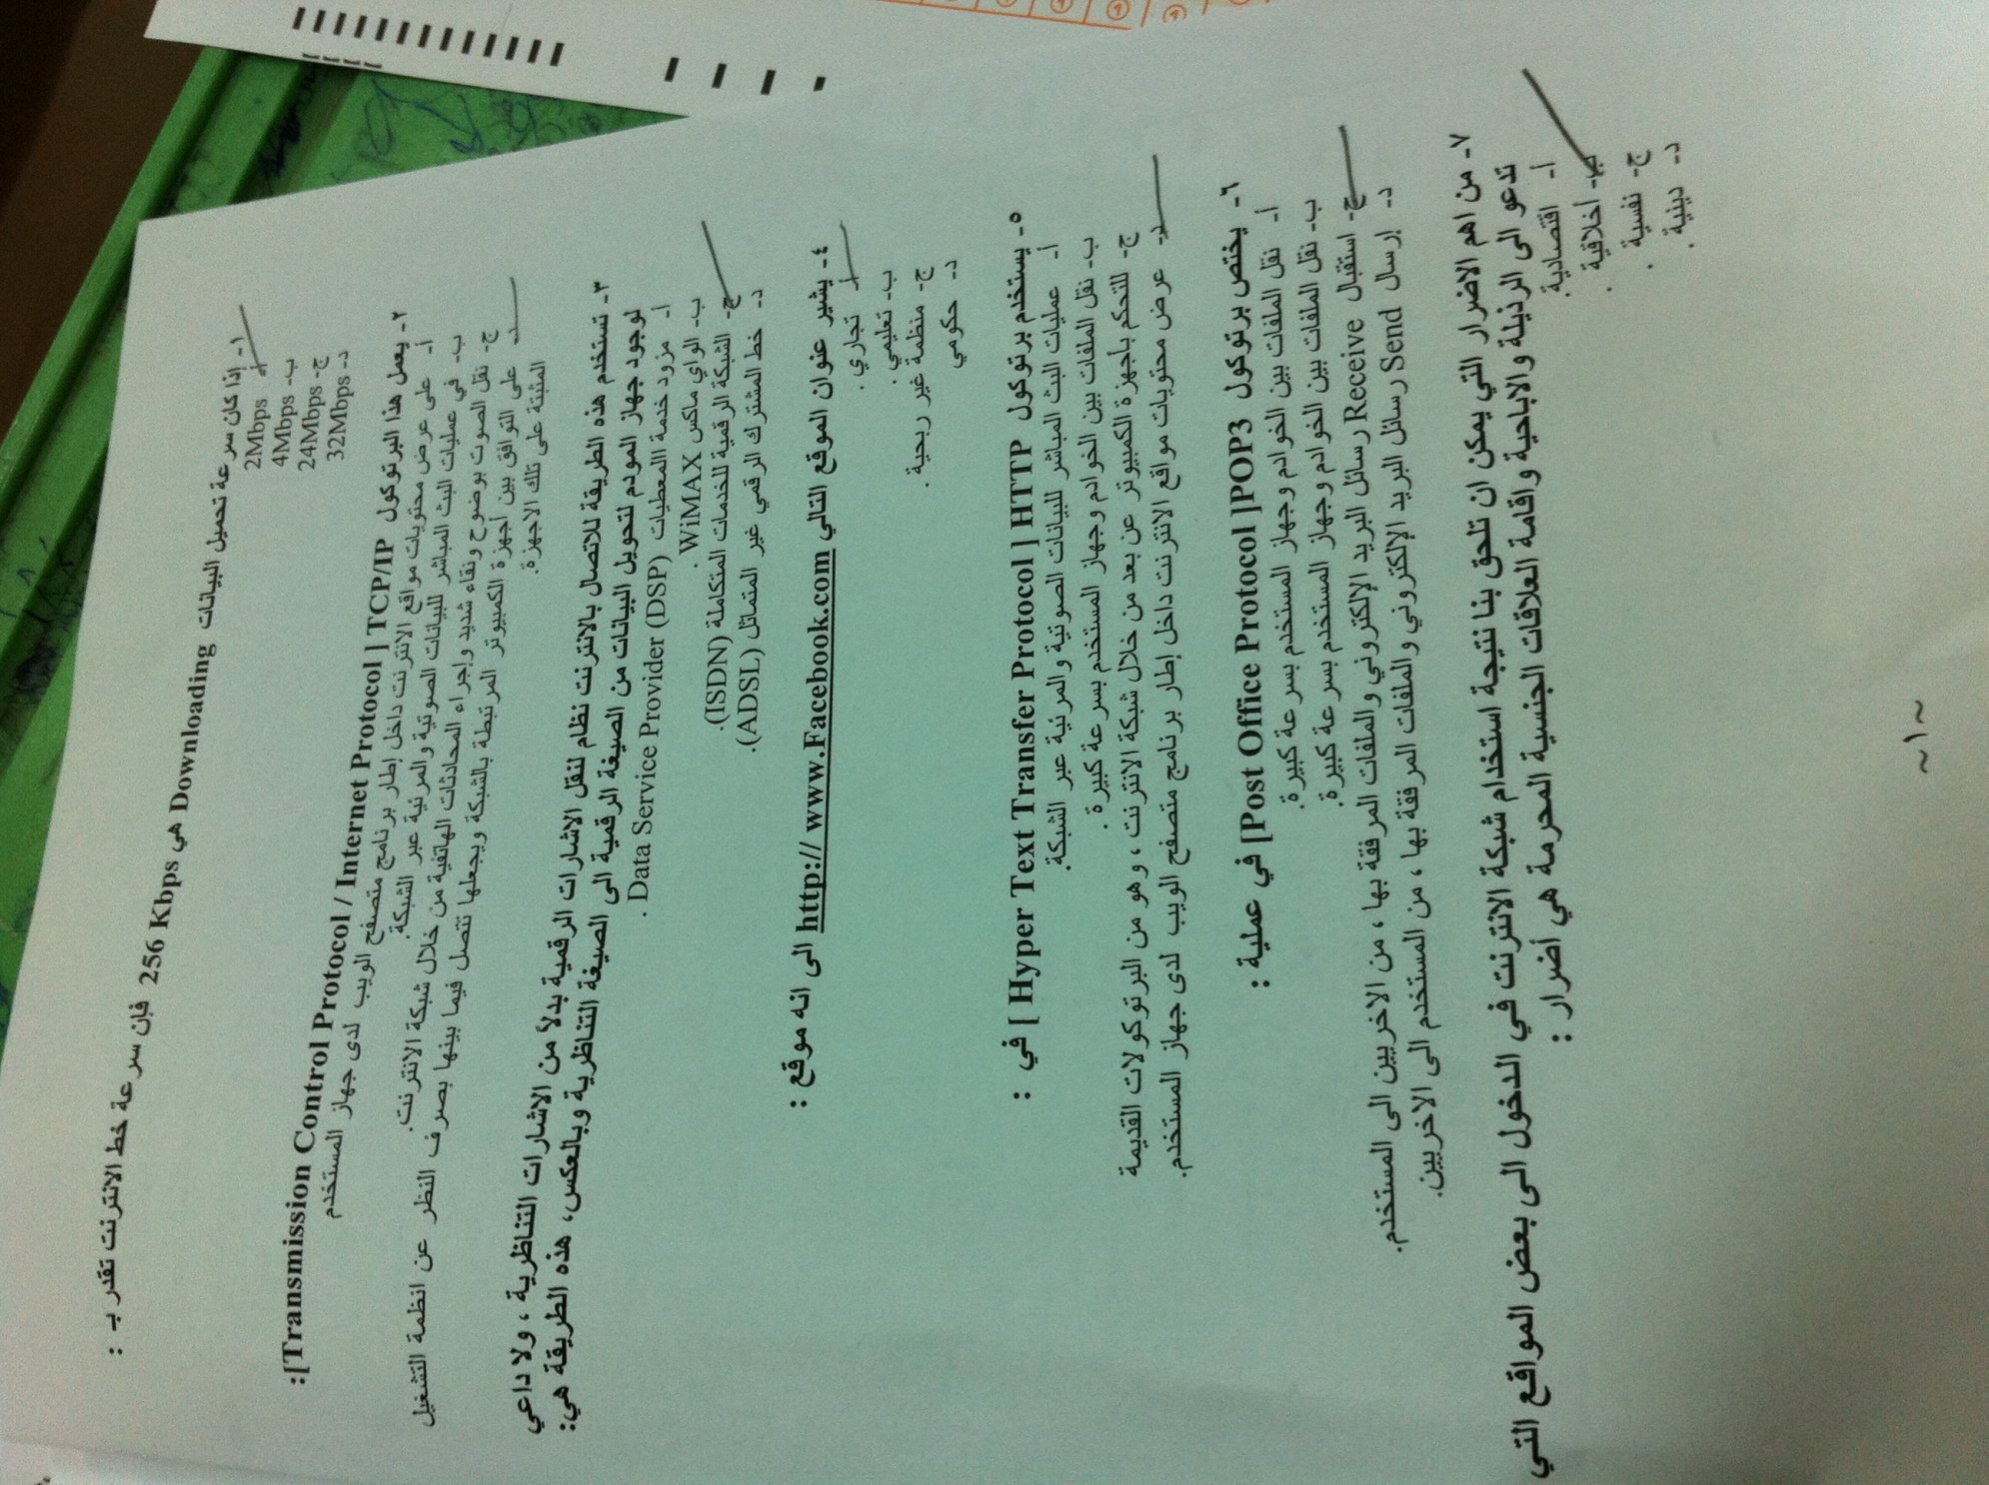 ١- إذا كان سرعة تحميل البيانات Downloading هي 256 Kbps فإن سرعة خط الانترنت تقدر بـ :
أ- 2Mbps
ب- 4Mbps
ج- 24Mbps
د- 32Mbps
٢- يعمل هذا البرتوكول TCP/IP [ Transmission Control Protocol / Internet Protocol]:
أ- على عرض محتويات مواقع الانترنت داخل إطار برنامج متصفح الويب لدى جهاز المستخدم
ب- في عمليات البث المباشر للبيانات الصوتية والمرئية عبر الشبكة.
ج- نقل الصوت بوضوح ونقاء شديد وإجراء المحادثات الهاتفية من خلال شبكة الانترنت.
د- على التوافق بين أجهزة الكمبيوتر المرتبطة بالشبكة ويجعلها تتصل فيما بينها بصرف النظر عن انظمة التشغيل
المثبتة على تلك الاجهزة.
٣- تستخدم هذه الطريقة للاتصال بالانترنت نظام لنقل الاشارات الرقمية بدلاً من الاشارات التناظرية ، ولا داعي
لوجود جهاز المودم لتحويل البيانات من الصيغة الرقمية الى الصيغة التناظرية وبالعكس، هذه الطريقة هي:
أ- مزود خدمة االمعطيات Data Service Provider (DSP) .
ب- الواي ماكس WiMAX .
ج- الشبكة الرقمية للخدمات المتكاملة (ISDN).
د- خط المشترك الرقمي غير المتماثل (ADSL).
٤- يشير عنوان الموقع التالي http:// www.Facebook.com الى انه موقع :
أ- تجاري .
ب- تعليمي .
ج- منظمة غير ربحية .
د- حكومي
٥- يستخدم برتوكول HTTP [ Hyper Text Transfer Protocol ] في :
أ- عمليات البث المباشر للبيانات الصوتية والمرئية عبر الشبكة.
ب- نقل الملفات بين الخوادم وجهاز المستخدم بسرعة كبيرة .
ج- للتحكم بأجهزة الكمبيوتر عن بعد من خلال شبكة الانترنت ، وهو من البرتوكولات القديمة
د- عرض محتويات مواقع الانترنت داخل إطار برنامج متصفح الويب لدى جهاز المستخدم.
٦- يختص برتوكول POP3 [Post Office Protocol] في عملية :
أ- نقل الملفات بين الخوادم وجهاز المستخدم بسرعة كبيرة.
ب- نقل الملفات بين الخوادم وجهاز المستخدم بسرعة كبيرة.
ج- استقبال Receive رسائل البريد الإلكتروني والملفات المرفقة بها ، من الاخريين الى المستخدم.
د- إرسال Send رسائل البريد الإلكتروني والملفات المرفقة بها ، من المستخدم الى الاخريين.
٧- من اهم الاضرار التي يمكن ان تلحق بنا نتيجة استخدام شبكة الانترنت في الدخول الى بعض المواقع التي
تدعو الى الرذيلة والاباحية واقامة العلاقات الجنسية المحرمة هي أضرار :
أ- اقتصادية .
ب- اخلاقية .
ج- نفسية .
د- دينية .
~١~